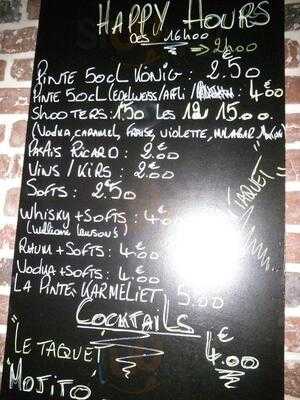 HAPPY HOURS
DÈS 16H00
=> 21H00
PINTE 50CL KÖNIG: 2€50
PINTE 50CL (EDELWEISS/AFFLI/ : 4€00
SHOOTERS: 1.50 LES 12 15.00
(VODKA, CARAMEL, FRAISE, VIOLETTE, MALABAR
PASTIS RICARD: 2€00
VINS / KIRS: 2€00
SOFTS: 2€50
WHISKY + SOFTS: 4€00
(William Lawson's)
RHUM + SOFTS: 4€00
VODKA + SOFTS: 4€00
LA PINTE KARMELIET 5.00
TAQUET"
COCKTAILS
"LE TAQUET 4€00
"MOJITO